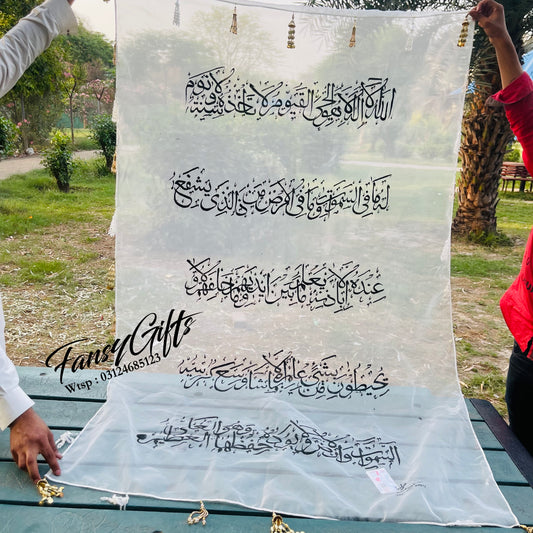 الله لا إله إلا هو الحي القيوم لا تأخذه سنة ولا نوم
له ما في السموت وما في الأرض من ذا الذي يشفع
عنده إلا بإذنه يعلم ما بين أيديهم وما خلفهم ولا
يحيطون بشيء من علمه إلا بما شاء وسع كرسيه
السموت والأرض ولا يؤده حفظهما وهو العلي العظيم
FansyGifts
Wtsp : 03124685123